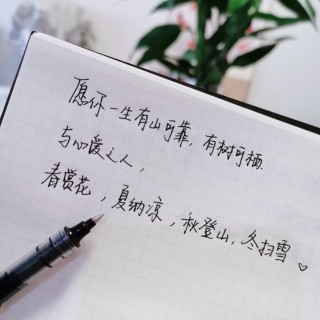 愿你一生有山可靠，有树可栖.
与心爱之人，
春赏花，夏纳凉，秋登山，冬扫雪♡